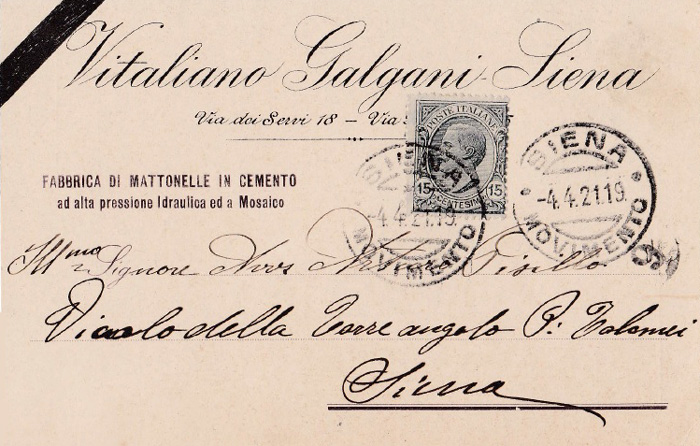 Vitaliano Galgani-Siena
Via dei Servi 18 - Via
POSTE ITALIANE
15 15
CENTESIMI
SIENA
-4.4.21.19.
MOVIMENTO
SIENA
-4.4.21.19.
MOVIMENTO
FABBRICA DI MATTONELLE IN CEMENTO
ad alta pressione Idraulica ed a Mosaico
Ill.mo Signore Avv.
Vicolo della Torre angolo P. Tolomei
Siena